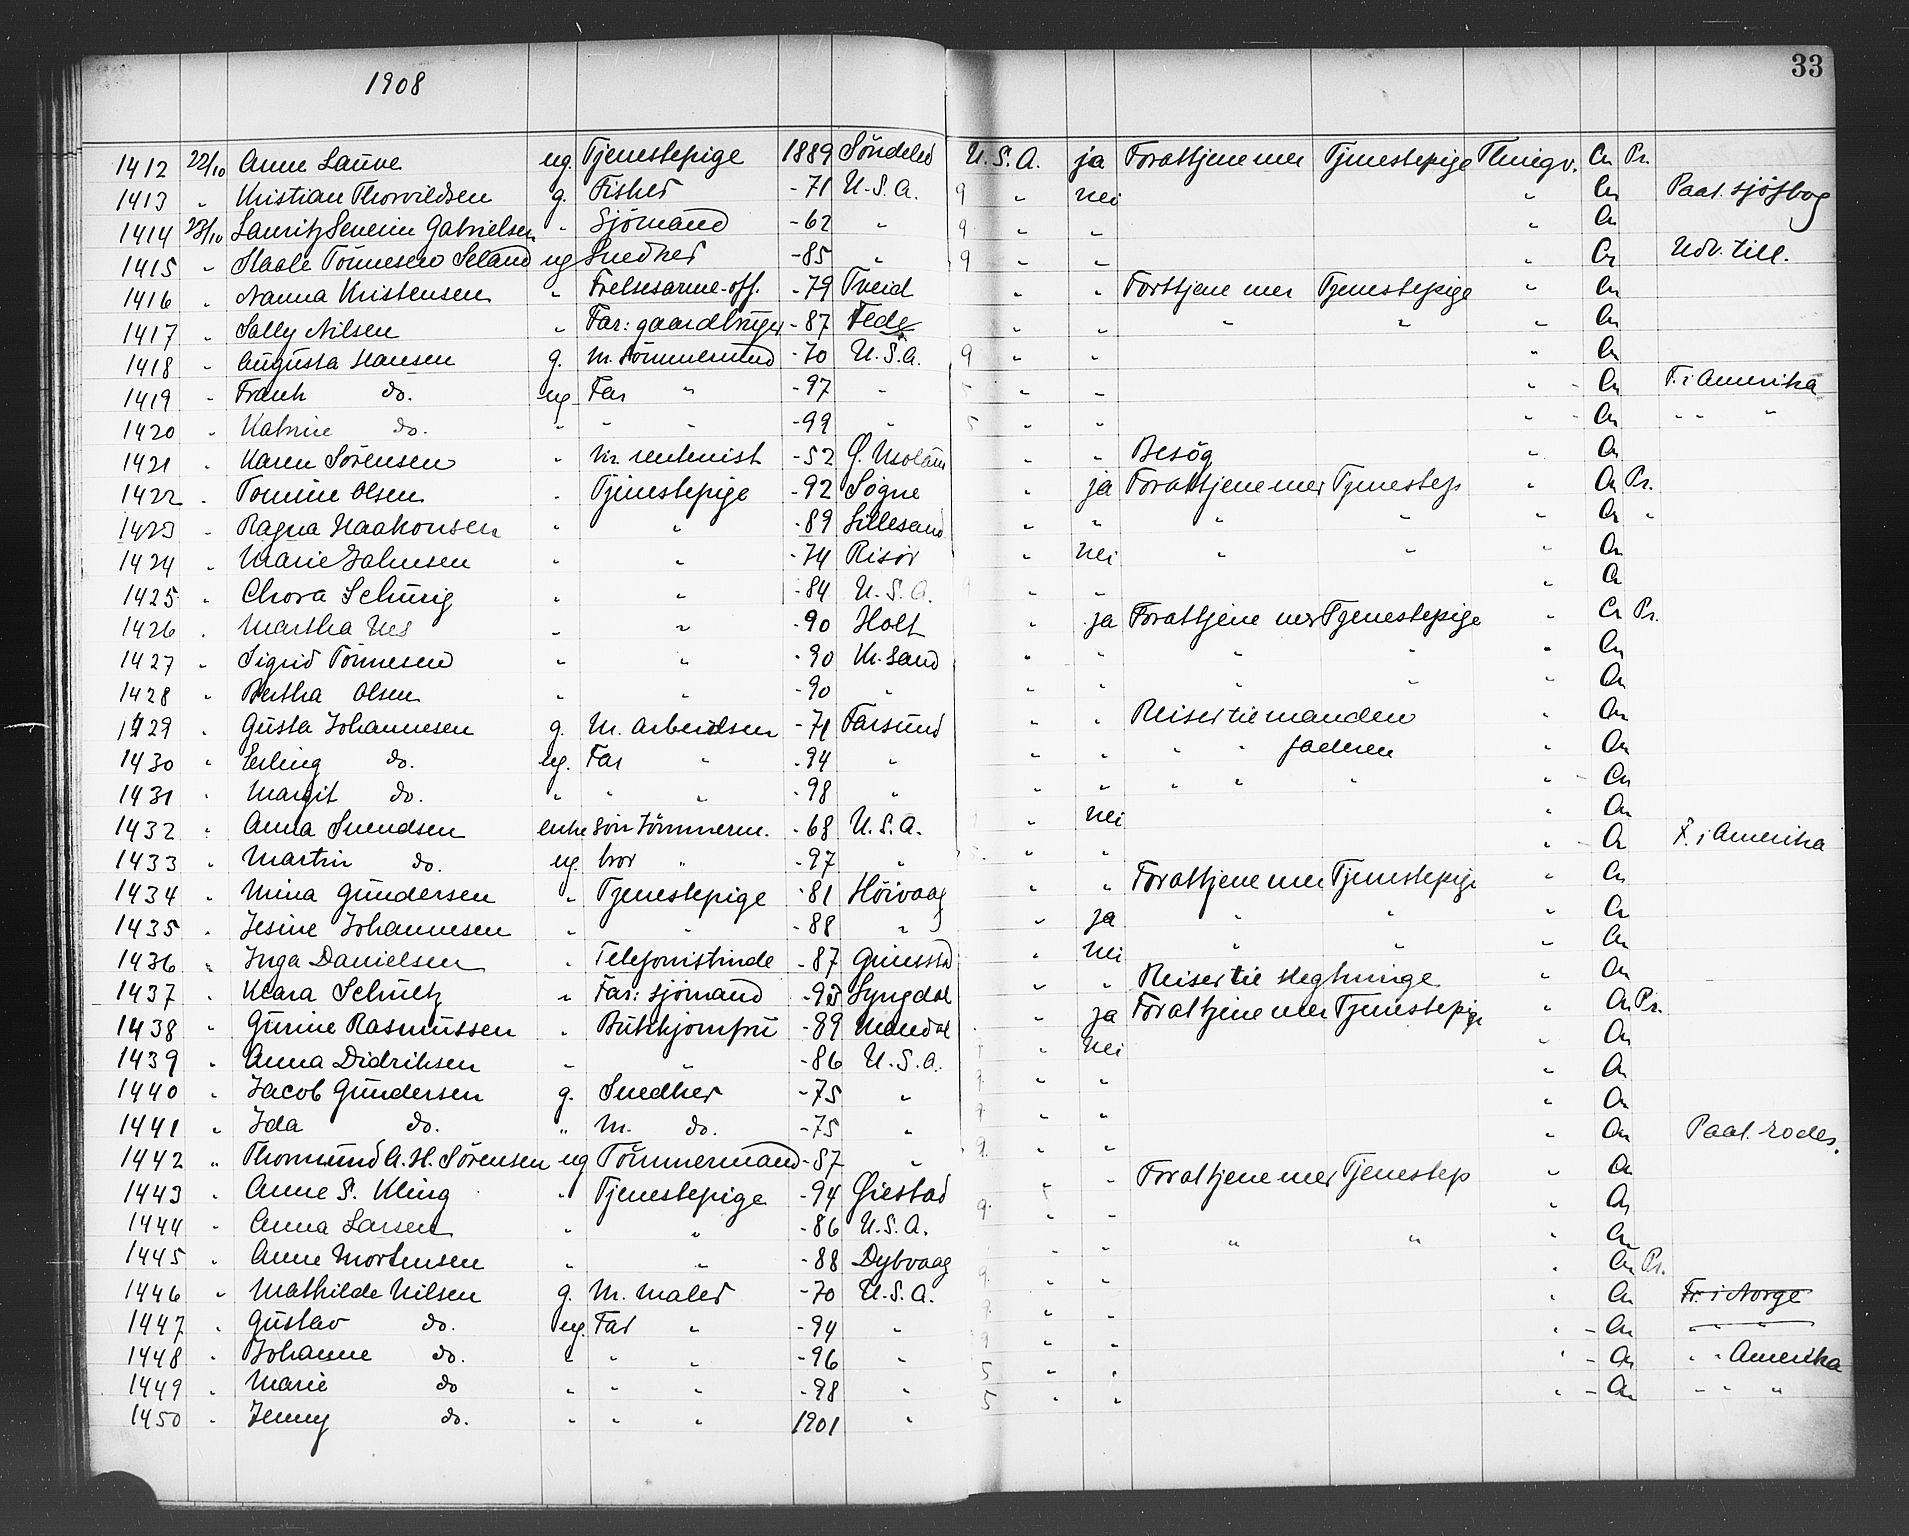 1908
33
1412 22/10 Anne Lauve ug. Tjenestepige 1889 Söndeled U.S.A. ja Forattjene mer Tjenestepige Thingv. Cn Pr.
1413 " Kristian Thorvildsen g. Fisker -71 U.S.A. 9 " nei " Cn Paat. sjöfbog
1414 23/10 Lauritz Severin Gabrielsen " Sjömand -62 " 9 " " " Cn
1415 " Staale Tönnesen Seland ug Snedker -85 " 9 " " " Cn Udv. till.
1416 " Nanna Kristensen " Frelsesarme-off. -79 Tveid " " Forttjene mer Tjenestepige " Cn
1417 " Sally Nilsen " Far: gaardbruger -87 Fede " " " " " Cn
1418 " Augusta Hansen g. M. tömmermand -70 U.S.A. 9 " " " Cn
1419 " Frank do. ug Far " -97 " 5 " " " - Cn F. i Amerika
1420 " Katrine do. " " " -99 " 5 " " " - Cn " " "
1421 " Karen Sörensen " rentenist -52 " " Besög " Cn
1422 " Tomine Olsen " Tjenestepige -92 Sogne " ja Forattjene mer Tjenestep " Cn Pr.
1423 " Ragna Haakonsen " " -89 Lillesand " " " " " Cn "
1424 " Marie Johnsen " " -74 Risör " nei " " " Cn
1425 " Chora Schurig " " -84 U.S.A. " " " Cn
1426 " Martha Nes " " -90 Holt " ja Forattjene mer Tjenestepige " Cn Pr.
1427 " Sigrid Tönnesen " " -90 Kr.sand " " " " " Cn
1428 " Bertha Olsen " " -90 " " " " " " Cn
1429 " Gusta Johannesen g. M. arbeidsm -71 Farsund " " Reiser til manden " Cn
1430 " Erling do. ug. Far " -94 " " " " " faderen " Cn
1431 " Margit do. " " " -98 " " " " " " " - Cn
1432 " Anna Svendsen enke Sön tömmerm. -68 U.S.A. " nei " Cn
1433 " Martin do. ug. bror " -97 " 5 " " " - Cn F. i Amerika
1434 " Mina Gundersen " Tjenestepige -81 Höivaag " " Forattjene mer Tjenestepige " Cn
1435 " Jesine Johannesen " " -88 " " ja " " " Cn
1436 " Inga Danielsen " Telefonistinde -87 Grimstad " nei " " " Cn
1437 " Klara Schultz " Far: sjömand -93 Lyngdal " " Reiser til slegtninge " Cn
1438 " Gurine Rasmussen " Butikkjomfru -89 Mandal " ja Forattjene mer Tjenestepige " Cn Pr.
1439 " Anna Didriksen " " -86 U.S.A. 9 " nei " Cn
1440 " Jacob Gundersen g. Snedker -75 " 9 " " " Cn
1441 " Ida do. " M. do. -75 " 9 " " " Cn
1442 " Thormund A. H. Sörensen ug Tömmermand -87 " 9. " " " Cn Paat. rodes.
1443 " Anne S. Kling " Tjenestepige -94 Öiestad " " Forattjene mer Tjenestep " Cn
1444 " Anna Larsen " " -86 U.S.A. 9. " " " Cn
1445 " Anne Mortensen " " -88 Dybvaag " " " " " Cn
1446 " Mathilde Nilsen g. M. maler -70 U.S.A. 9. " " " Cn Pr.
1447 " Gustav do. ug. Far " -94 " 9. " " " Cn Fr. i Norge
1448 " Johanne do. " " " -96 " 9 " " " - Cn " " "
1449 " Marie do " " " -98 " 5 " " " - Cn " " Amerika
1450 " Jenny do. " " " 1901 " 5 " " " - Cn " " "